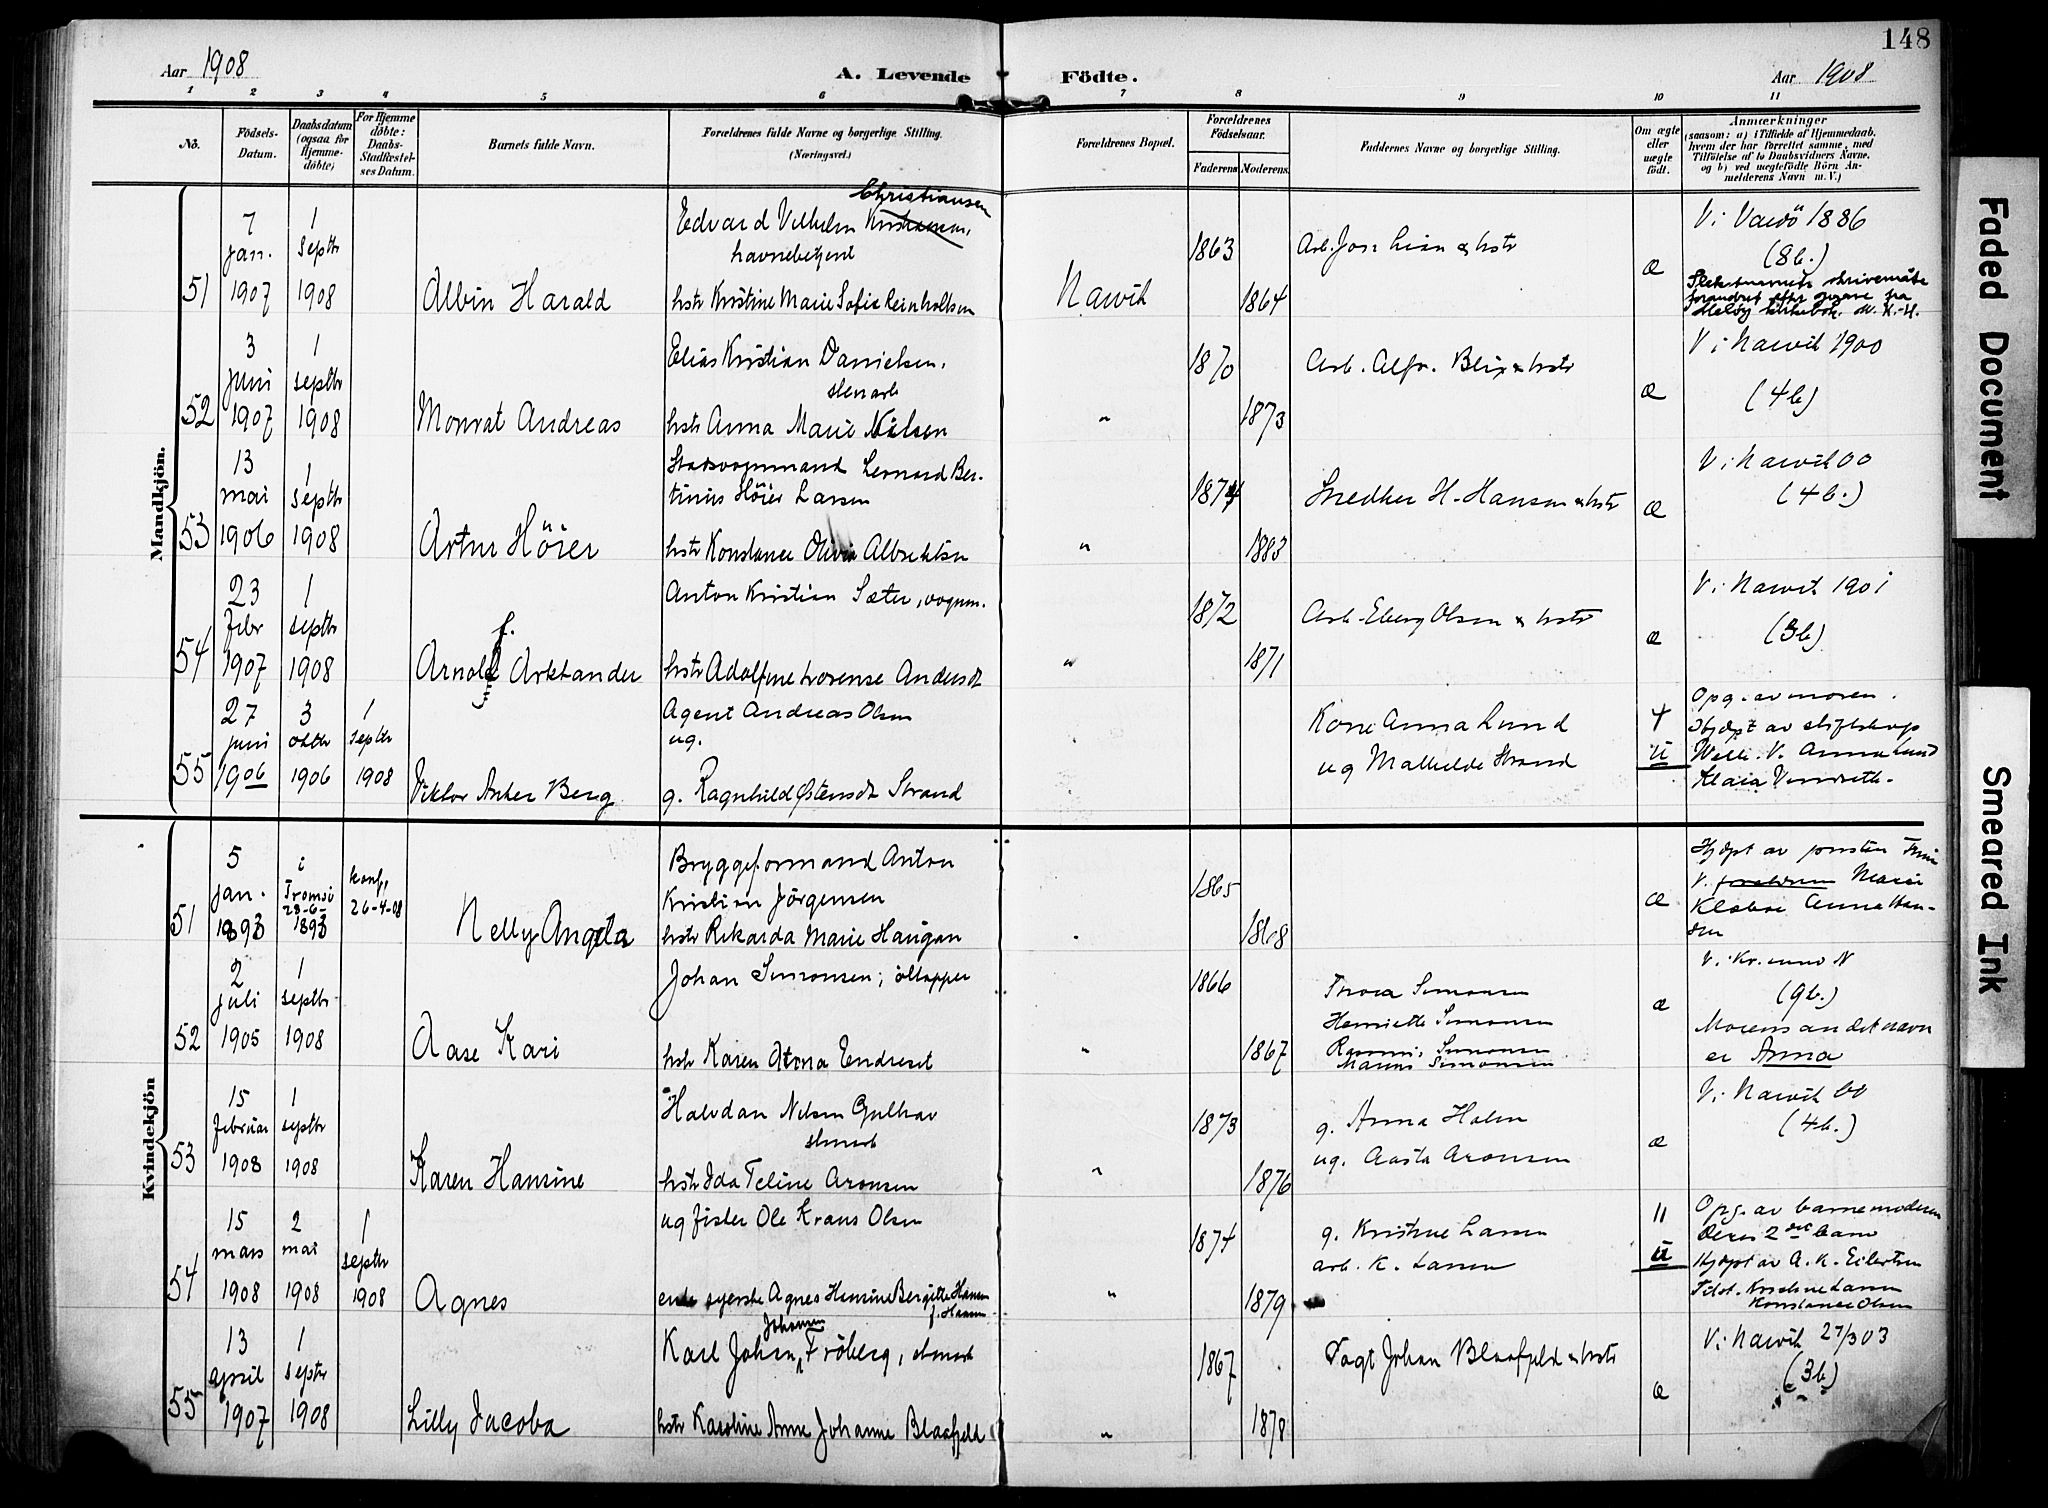 148
Aar 1908
A. Levende Födte.
Aar 1908
1 2 3 4 5 6 7 8 9 10 11
No.
Födsels-
Datum.
Daabsdatum
(ogsaa for
Hjemme-
døbte)
For Hjemme
døbte:
Daabs-
Stadfæstel-
ses Datum.
Barnets fulde Navn.
Forældrenes fulde Navne og borgerlige Stilling.
(Næringsvei.)
Forældrenes Bopæl.
Forældrenes
Födselsaar.
Faderens
Moderens.
Faddernes Navne og borgerlige Stilling.
Om ægte
eller
uægte
födt.
Anmærkninger
(saasom: a) i Tilfælde af Hjemmedaab.
hvem der har forrettet samme, med
Tilföielse af to Daabsvidners Navne.
og b) ved uægtefödte Börn An-
melderens Navn m. V.)
Mandkjön.
51
7
jan.
1907
1
septbr
1908
Albin Harald
Christiansen
Edvard Vilhelm Kristiansen,
havnebetjent
hstr Kristine Marie Sofie Reinholtsen
Narvik
1863
1864
Arb. Jos. Lian & hstr
æ
V. i Værö 1886
(8b.)
52
3
juni
1907
1
septbr
1908
Monrat Andreas
Elias Kristian Danielsen,
stenarb
hstr Anna Marie Nilsen
"
1870
1873
Arb. Alfr. Blix & hstr
æ
V. i Narvik 1900
(4b)
53
13
mai
1906
1
septbr
1908
Artur Höier
Stadsvognmand Leonard Ber-
tinius Höier Larsen
hstr Konstance Olivia Albrektsen
"
1874
1883
Snedker H. Hansen & hstr
æ
V. i Narvik 00
(4b.)
54
23
febr
1907
1
septbr
1908
f.
Arnold Arktander
Anton Kristian Sæter, vognm.
hstr Adolfine Lorense Andersdt
"
1872
1871
Arb. Eberg Olsen & hstr
æ
V. i Narvik 1901
(3b)
55
27
juni
1906
3
oktbr
1906
1
septbr
1908
Viktor Anker Berg
Agent Andreas Olsen
ug.
g. Ragnhild Østensdt Strand
Kone Anna Lund
ug Mathilde Strand
4
u
Opg. av moren.
Hjdpt av stiftskap
Welle. V. Anna Lund
Klara
Kvindekjön
51
5
jan.
1893
i
Tromsö
28-6-
1893
konf.
26-4-08
Nelly Angela
Bryggeformand Anton
Kristian Jörgensen
hstr Rikarda Marie Haugan
1865
1868
æ
Hjdpt av presten
V. foreldrene Marie
Klæboe Anna Han-
sen
52
2
juli
1905
1
septbr
1908
Aase Kari
Johan Simonsen, öltapper
hstr Karen Anna Endreset
"
1866
1867
Thora Simonsen
Henriette Simonsen
Rasmus Simonsen
Marius Simonsen
æ
V. i Kr.sund N
(9b.)
Morens andet navn
er Anna
53
15
februar
1908
1
septbr
1908
Karen Hansine
Halvdan Nilsen Gulhav
stenarb
hstr Ida Teline Aronsen
"
1873
1876
g. Anna Holm
ug. Aasta Aronsen
æ
V. i Narvik 00
(4b.)
54
15
mars
1908
2
mai
1908
1
septbr
1908
Agnes
ug fisker Ole Kraus Olsen
enke syerske Agnes Hansine Bergitte Hansen
f. Hansen
"
1874
1879
g. Kristine Larsen
arb. K. Larsen
11
u
Opg. av barnemoderen
Deres 2det barn
Hjdpt av A. K. Eilertsen
Tilst. Kristine Larsen
Konstance Olsen
55
13
april
1907
1
septbr
1908
Lilly Jacoba
Johansen
Karl Johan Fröberg, stenarb
hstr Karoline Anne Johanne Blaafjeld
"
1867
1878
Vogt Johan Blaafjeld & hstr
æ
V. i Narvik 27/3 03
(3b)
Faded Document
Smeared Ink